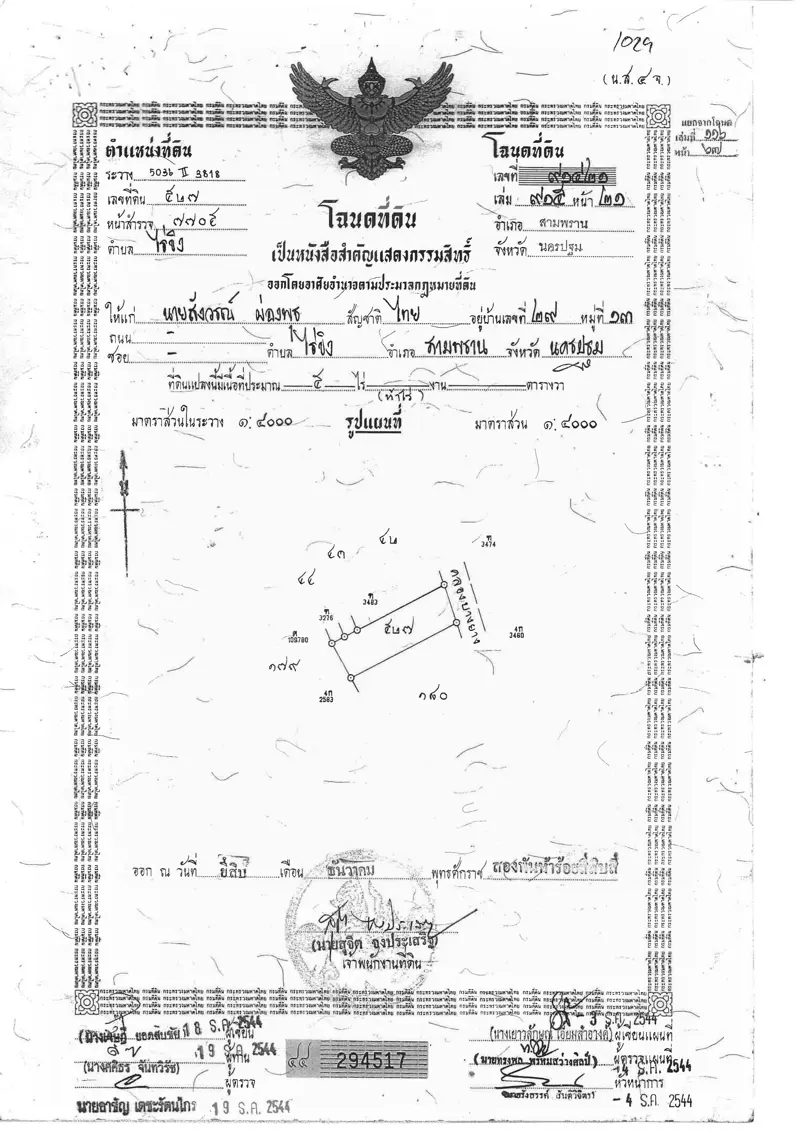 1029
(น.ส.๔ จ.)
แยกจากโฉนด
เล่มที่ ๑๑๖
หน้า ๖๗
ตำแหน่งที่ดิน
ระวาง 5036 II 3818
เลขที่ดิน ๕๒๗
หน้าสำรวจ ๗๗๐๕
ตำบล ไร่ขิง
โฉนดที่ดิน
เลขที่ ๙๑๔๒๑
เล่ม ๙๑๕ หน้า ๒๑
อำเภอ สามพราน
จังหวัด นครปฐม
โฉนดที่ดิน
เป็นหนังสือสำคัญแสดงกรรมสิทธิ์
ออกโดยอาศัยอำนาจตามประมวลกฎหมายที่ดิน
ให้แก่ นายสังวรณ์ ผ่องพุธ สัญชาติ ไทย อยู่บ้านเลขที่ ๒๙ หมู่ที่ ๑๓
ถนน -
ซอย - ตำบล ไร่ขิง อำเภอ สามพราน จังหวัด นครปฐม
ที่ดินแปลงนี้มีเนื้อที่ประมาณ ๕ ไร่ งาน ตารางวา
(ห้าไร่)
มาตราส่วนในระวาง ๑:๔๐๐๐ รูปแผนที่ มาตราส่วน ๑:๔๐๐๐
๔๒
๔๓
๔๔
3474
3483
3276
109780
คลองบางยาง
๕๒๗
3460
๑๗๙
2583
๑๘๐
ออก ณ วันที่ ยี่สิบ เดือน ธันวาคม พุทธศักราช สองพันห้าร้อยสี่สิบสี่
(นายสุจิต จงประเสริฐ)
เจ้าพนักงานที่ดิน
18 ธ.ค. 2544
ผู้เขียน
19 ธ.ค. 2544
ผู้ทาน
(นางศศิธร จันทวิรัช)
ผู้ตรวจ
นายอาชัญ เตชะรัตนไกร 19 ธ.ค. 2544
294517
- 3 ธ.ค. 2544
ผู้เขียนแผนที่
ผู้ตรวจแผนที่
- 4 ธ.ค. 2544
หัวหน้าการ
- 4 ธ.ค. 2544